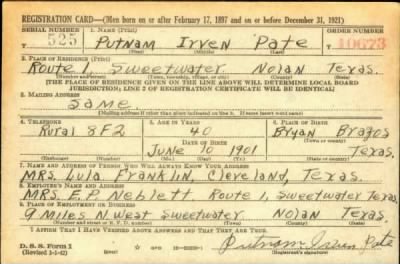 REGISTRATION CARD—(Men born on or after February 17, 1897 and on or before December 31, 1921)
SERIAL NUMBER 1. NAME (Print) ORDER NUMBER
T 525 Putnam Irven Pate 10673
(First) (Middle) (Last)
2. PLACE OF RESIDENCE (Print)
Route 1 Sweetwater Nolan Texas.
(Number and street) (Town, township, village, or city) (County) (State)
[THE PLACE OF RESIDENCE GIVEN ON THE LINE ABOVE WILL DETERMINE LOCAL BOARD
JURISDICTION; LINE 2 OF REGISTRATION CERTIFICATE WILL BE IDENTICAL]
3. MAILING ADDRESS
Same
[Mailing address if other than place indicated on line 2. If same insert word same]
4. TELEPHONE 5. AGE IN YEARS 6. PLACE OF BIRTH
Rural 8F2 40 Bryan Brazos
DATE OF BIRTH (Town or county)
June 10 1901 Texas.
(Exchange) (Number) (Mo.) (Day) (Yr.) (State or country)
7. NAME AND ADDRESS OF PERSON WHO WILL ALWAYS KNOW YOUR ADDRESS
Mrs. Lula Franklin, Cleveland, Texas.
8. EMPLOYER'S NAME AND ADDRESS
Mrs. E.P. Neblett Route 1, Sweetwater Texas
9. PLACE OF EMPLOYMENT OR BUSINESS
9 Miles N. West Sweetwater Nolan Texas.
(Number and street or R. F. D. number) (Town) (County) (State)
I AFFIRM THAT I HAVE VERIFIED ABOVE ANSWERS AND THAT THEY ARE TRUE.
D. S. S. Form 1
(Revised 1-1-42) (over) Putnam Irven Pate
(Registrant's signature)